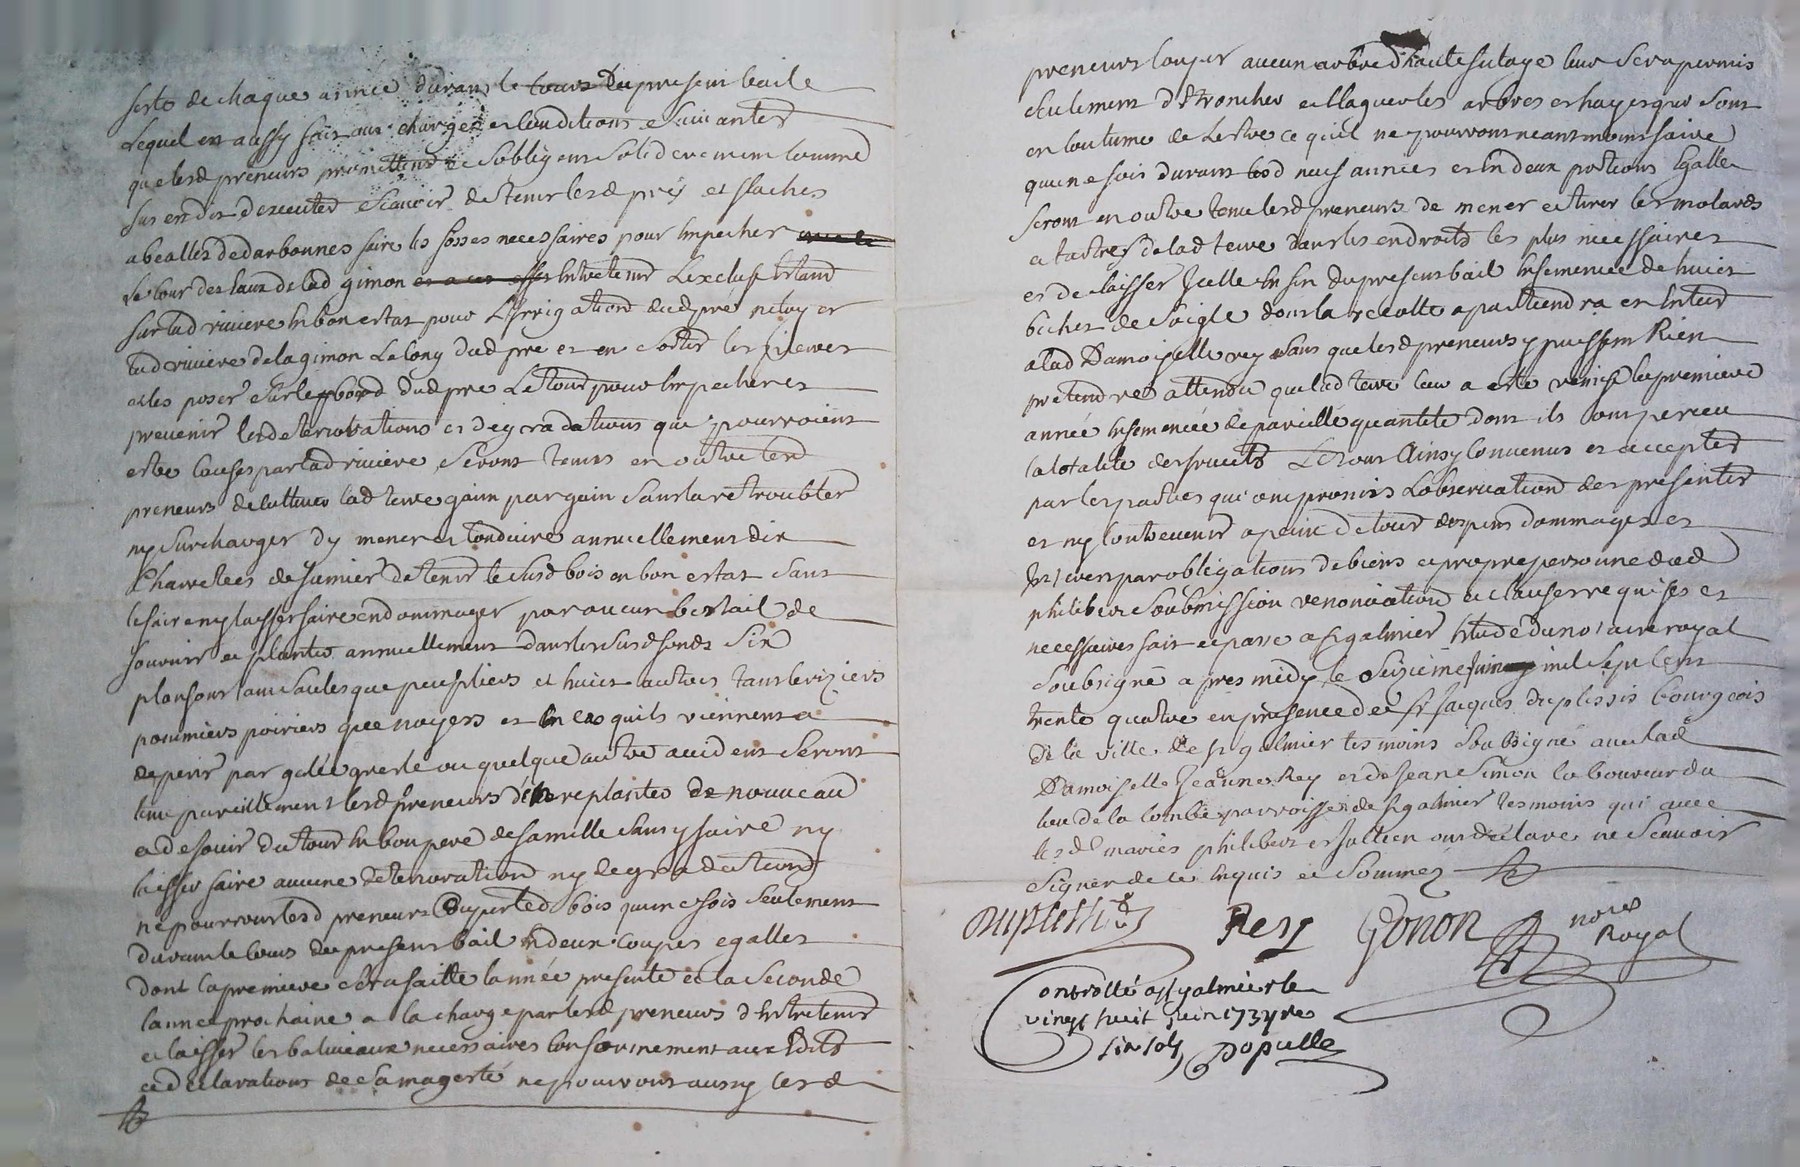 feste de chaque année durant le cours du present baile
Lequel est aussy fait aux charges et Conditions Suivantes
que lesd preneurs promettent et Sobligent Solideremem Comme
sus est dit dexecuter Scavoir de tenir lesd prés et
faire les fosses necessaires pour Impecher
le cour des Eaux de lad gimon Entretenir Lexcluse Estant
sur lad riviere En bon estat pour L'irrigation dud pré netoyer
lad riviere de la gimon Le long dud pre et en Sortir les pierres
et les poser Sur le bord dud pre Le tout pour Impecher et
prevenir les deteriorations et degradations qui pourroient
estre Causes par lad riviere, Seront tenus en outre lesd
preneurs de Cultiver lad terre gain par gain Sans la retroubler
ny Surcharger dy mener et Conduire annuellement dix
Charretees de fumier de tenir le Susd bois en bon estat Sans
le faire ny laisser faire endommager par aucun bestail de
fournir et planter annuellement dans les Susd fonds Six
plansons tant Saules que peupliers et huict autres tant Ceriziers
pommiers poiriers que noyers et En Cas quils viennent a
deperir par gelée gresle ou quelque autre accident Seront
tenu pareillement lesd preneurs den replanter de nouveau
et de faire du tout En bon pere de famille Sans y faire ny
laisser faire aucune deterioration ny degradation
ne pourront lesd preneurs Couper led bois quune fois Seulement
durant le Cours du present bail En deux Coupes egalles
dont la premiere Sera faitte lannée presente et la Seconde
lannee prochaine a la charge par lesd preneurs dEntretenir
et laisser les baliveaux necessaires Conformement aux Edits
et declarations de Sa magesté ne pourront aussy lesd
preneurs Couper aucun arbre d'haute futaye leur Sera permis
Seulement dEtroncher et Elaguer les arbres et hayes qui Sont
en Coutume de Lestre ce quil ne pourront neantmoins faire
quune fois durant lesd neuf années et En deux portions Egalle
Seront en outre tenu lesd preneurs de mener et tirer les molards
et de lad terre dans les endroits les plus necessaires
et de laisser Icelle En fin du present bail Ensemencée de huict
bichet de Soigle dont la recolte apartiendra en Entier
a lad Damoiselle rey Sans que lesd preneurs y puissent Rien
pretendre attendu que lad terre leur a esté remise la premiere
année Ensemencée de pareille quantité dont ils ont perceu
la totalité des fruits Le tout Ainsy Convenus et accepter
par les parties qui ont promis Lobservation des presentes
et ny Contrevenir a peine de tous despens dommages et
Int par obligations de biens et propre personne dud
philibert Soubmission renonciation et clauses requises et
necessaires fait et passé a St galmier Etude du notaire royal
Soubsigné apres midy le Seizieme Juin mil Sept Cent
trente quatre en presence de Sr Jacques duplessis bourgeois
de la ville de St galmier tesmoins Soubsigné avec lad
Damoiselle Jeanne Rey et de Jean Simon laboureur du
lieu de la Combe parroisse de St galmier tesmoins qui avec
lesd mariés philibert et Jullien ont declare ne Scavoir
Signer de ce Enquis et Sommés
Duplessis Rey Gonon nore Royal
Controllé a St galmier le
vingt huit juin 1734 res
six sols Populle